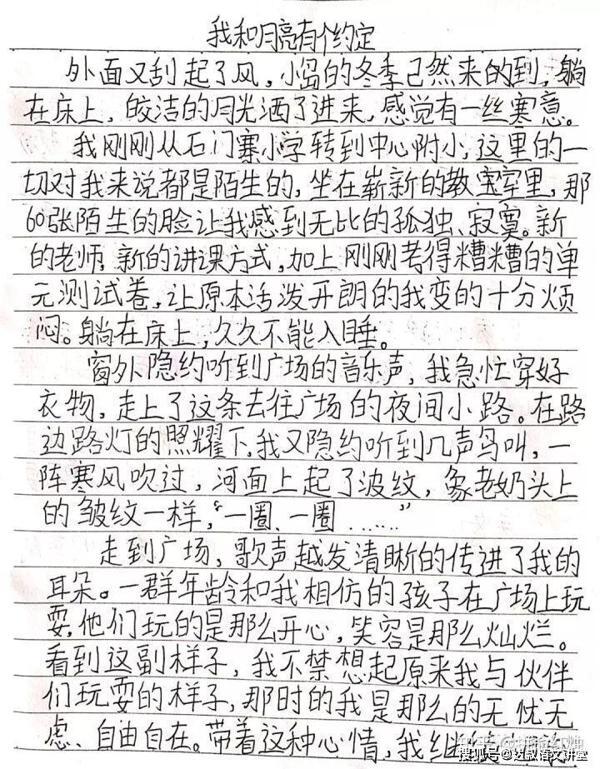 我和月亮有个约定
外面又刮起了风，小岛的冬季已然来的到，躺
在床上，皎洁的月光洒了进来，感觉有一丝寒意。
我刚刚从石门寨小学转到中心附小，这里的一
切对我来说都是陌生的，坐在崭新的教室里，那
60张陌生的脸让我感到无比的孤独、寂寞。新
的老师，新的讲课方式，加上刚刚考得糟糟的单
元测试卷，让原本活泼开朗的我变的十分烦
闷。躺在床上，久久不能入睡。
窗外隐约听到广场的音乐声，我急忙穿好
衣物，走上了这条去往广场的夜间小路。在路
边路灯的照耀下，我又隐约听到几声鸟叫，一
阵寒风吹过，河面上起了波纹，象老奶头上
的皱纹一样，“一圈、一圈……”
走到广场，歌声越发清晰的传进了我的
耳朵。一群年龄和我相仿的孩子在广场上玩
耍，他们玩的是那么开心，笑容是那么灿烂。
看到这副样子，我不禁想起原来我与伙伴
们玩耍的样子，那时的我是那么的无忧无
虑、自由自在。带着这种心情，我继
搜狐号@达叔语文讲堂